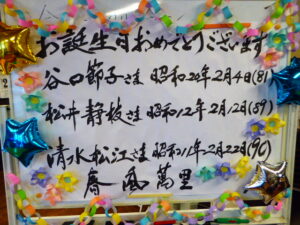 お誕生日おめでとうございます
谷口節子さま 昭和20年2月4日(81)
松井静枝さま 昭和12年2月12日(89)
清水松江さま 昭和11年2月22日(90)
春風萬里